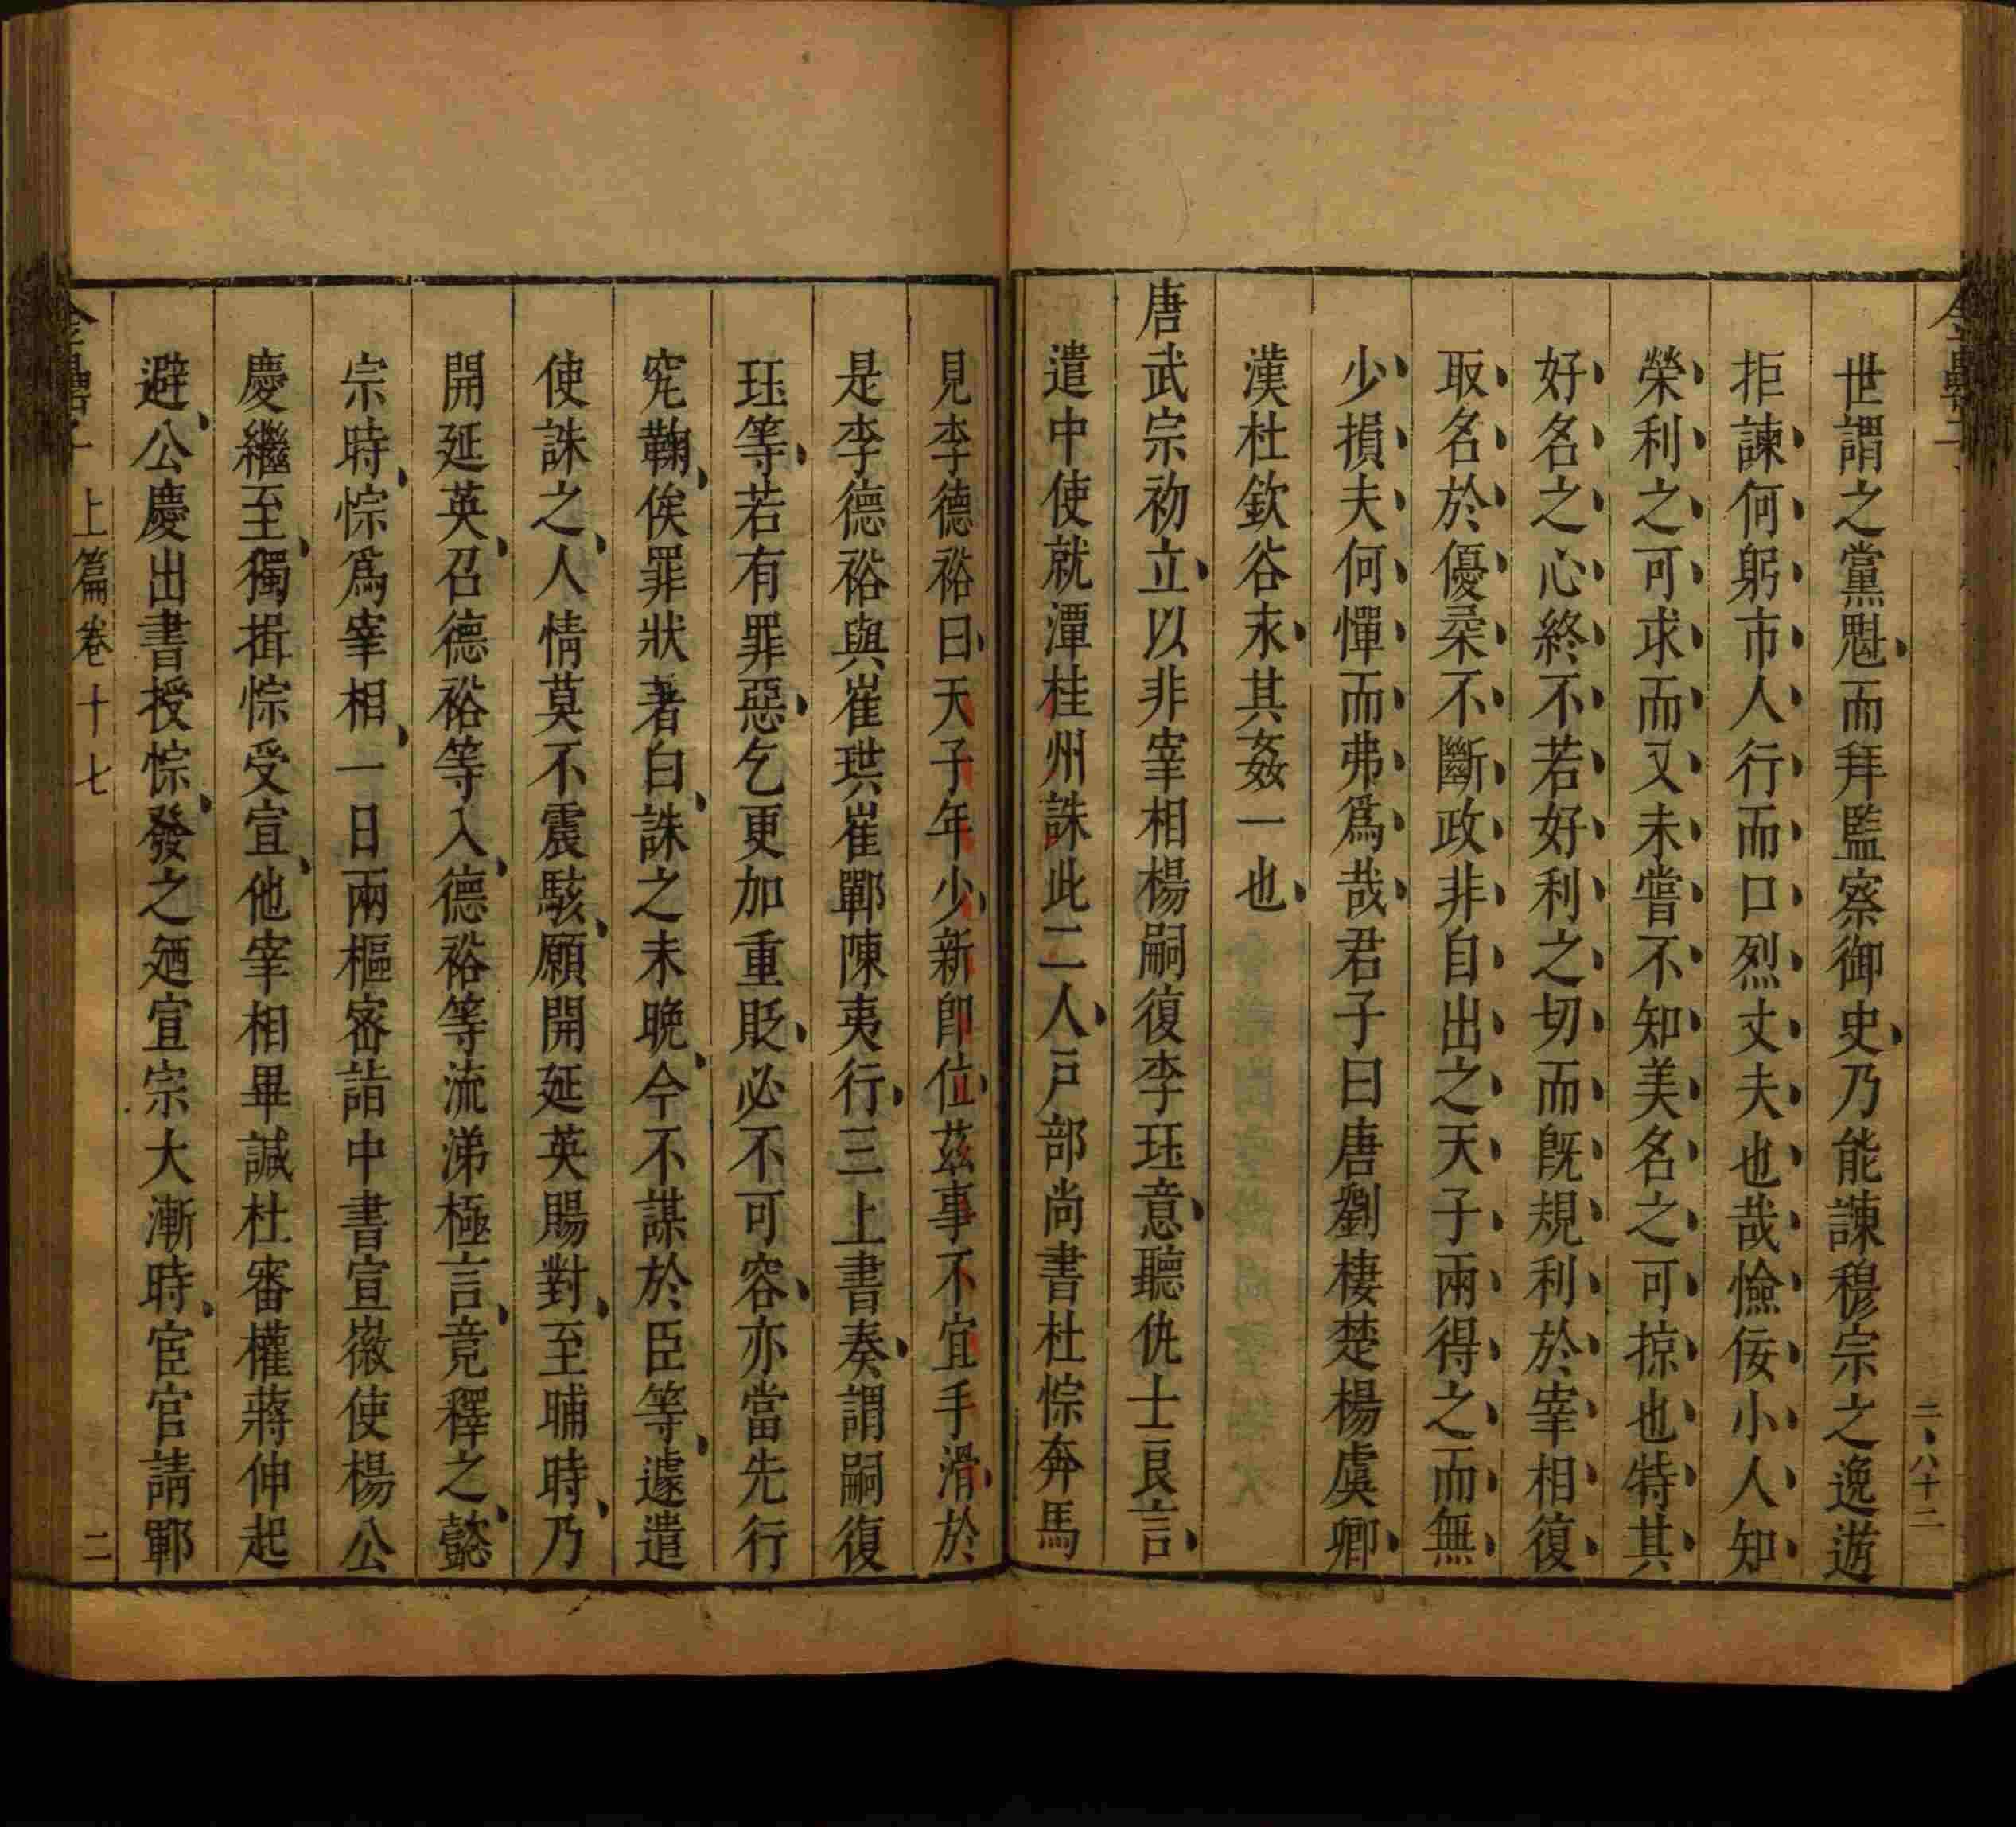 世謂之黨魁而拜監察御史乃能諫穆宗之逸遊
拒諫何躬市人行而口烈丈夫也哉憸佞小人知
榮利之可求而又未嘗不知美名之可掠也特其
好名之心終不若好利之切而旣規利於宰相復
取名於優柔不斷政非自出之天子兩得之而無
少損夫何憚而弗爲哉君子曰唐劉棲楚楊虞卿
漢杜欽谷永其姦一也
唐武宗初立以非宰相楊嗣復李珏意聽仇士良言
遣中使就潭桂州誅此二人戸部尚書杜悰奔馬
見李德裕曰天子年少新卽位茲事不宜手滑於
是李德裕與崔珙崔鄲陳夷行三上書奏謂嗣復
珏等若有罪惡乞更加重貶必不可容亦當先行
究鞫俟罪狀著白誅之未晚今不謀於臣等遽遣
使誅之人情莫不震駭願開延英賜對至晡時乃
開延英召德裕等入德裕等流涕極言竟釋之懿
宗時悰爲宰相一日兩樞密詣中書宣徽使楊公
慶繼至獨揖悰受宣他宰相畢諴杜審權蔣伸起
避公慶出書授悰發之廼宣宗大漸時宦官請鄆
上篇卷十七
二